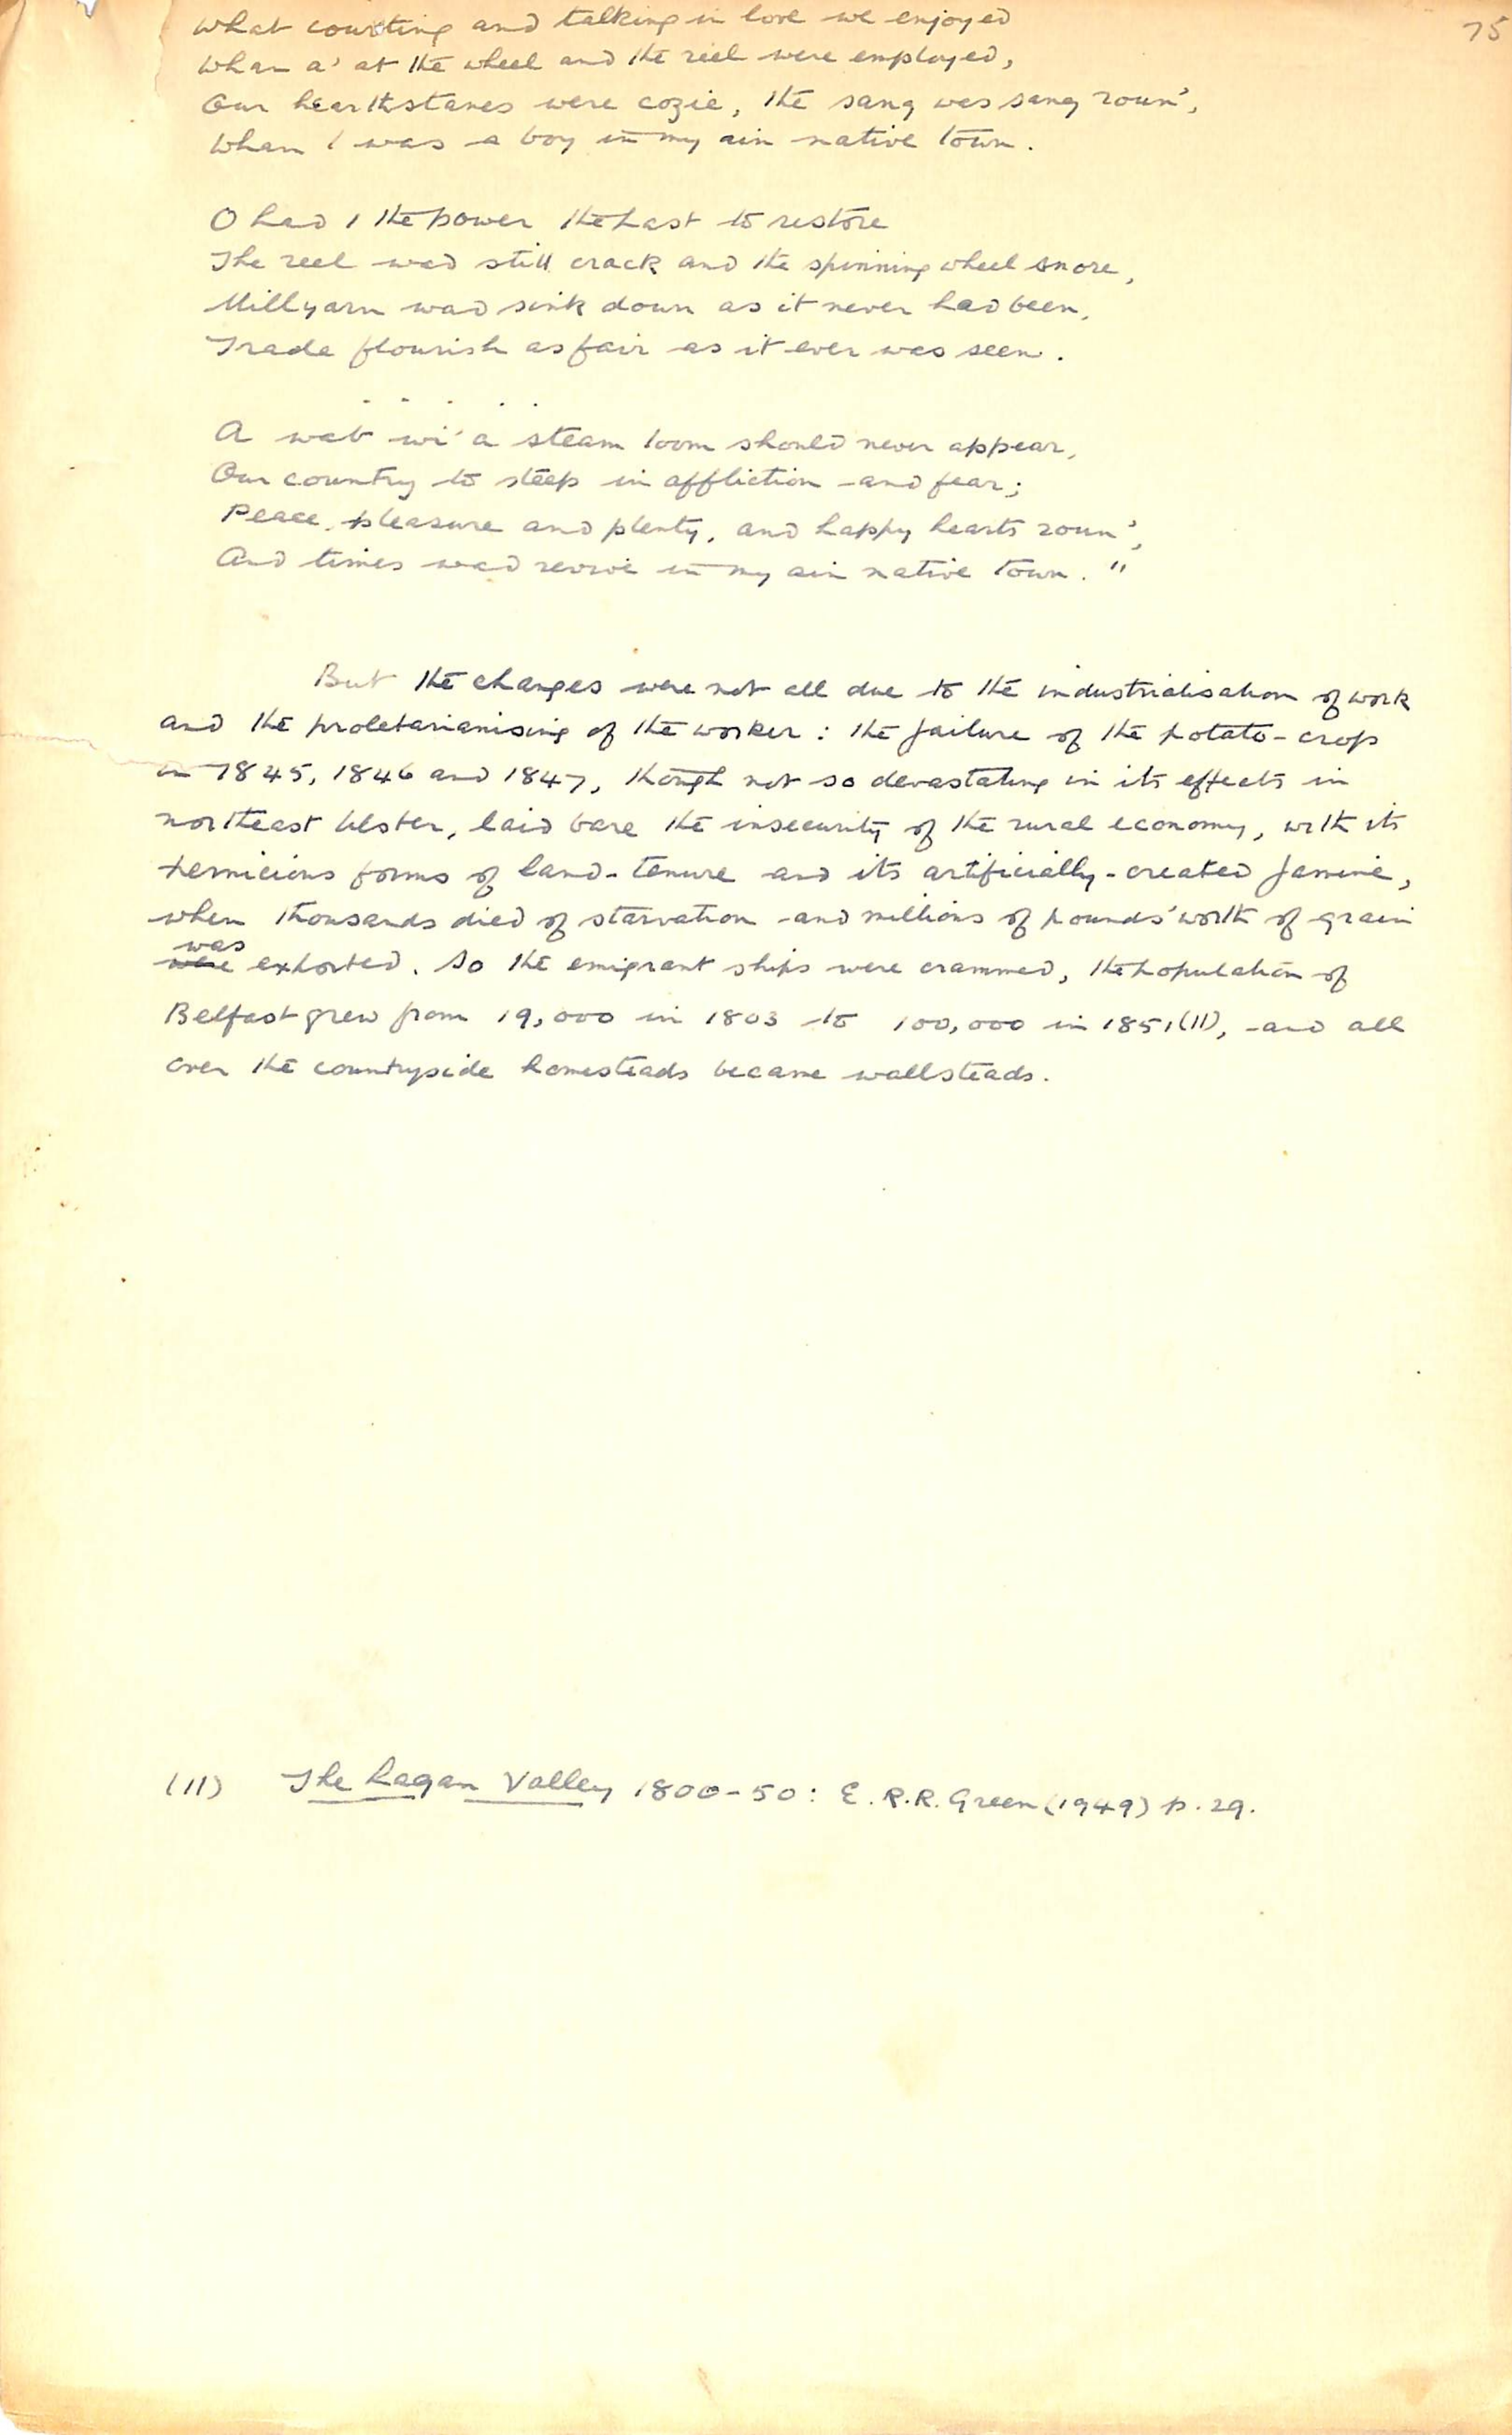 75
What courting and talking in love we enjoyed
Whan a' at the wheel and the reel were employed,
Our hearthstanes were cozie, the sang was sung roun',
Whan I was a boy in my ain native town.
O had I the power the past to restore
The reel wad still crack and the spinning wheel snore,
Millyarn wad sink down as it never had been,
Trade flourish as fair as it ever was seen.
. . . . .
A wab wi' a steam loom should never appear,
Our country to steep in affliction and fear;
Peace, pleasure and plenty, and happy hearts roun',
And times wad revive in my ain native town."
But the changes were not all due to the industrialisation of work
and the proletarianising of the worker: the failure of the potato-crop
in 1845, 1846 and 1847, though not so devastating in its effects in
northeast Ulster, laid bare the insecurity of the rural economy, with its
pernicious forms of land-tenure and its artificially-created famine,
when thousands died of starvation and millions of pounds' worth of grain
was
were exported. So the emigrant ships were crammed, the population of
Belfast grew from 19,000 in 1803 to 100,000 in 1851(11), and all
over the countryside homesteads became wallsteads.
(11) The Lagan Valley 1800-50: E.R.R. Green (1949) p.29.